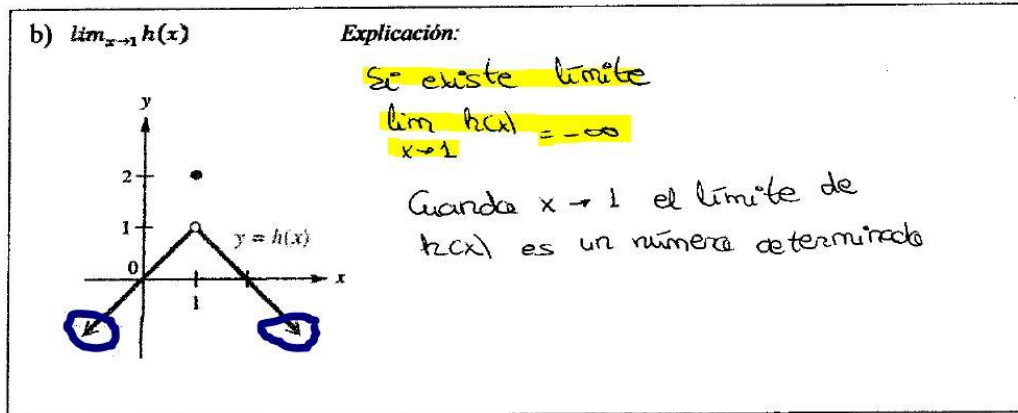 b) lim_{x→1} h(x)
Explicación:
Si existe límite
lim h(x) = -∞
x→1
Cuando x → 1 el límite de
h(x) es un número determinado
y
2
1
y = h(x)
0
x
1